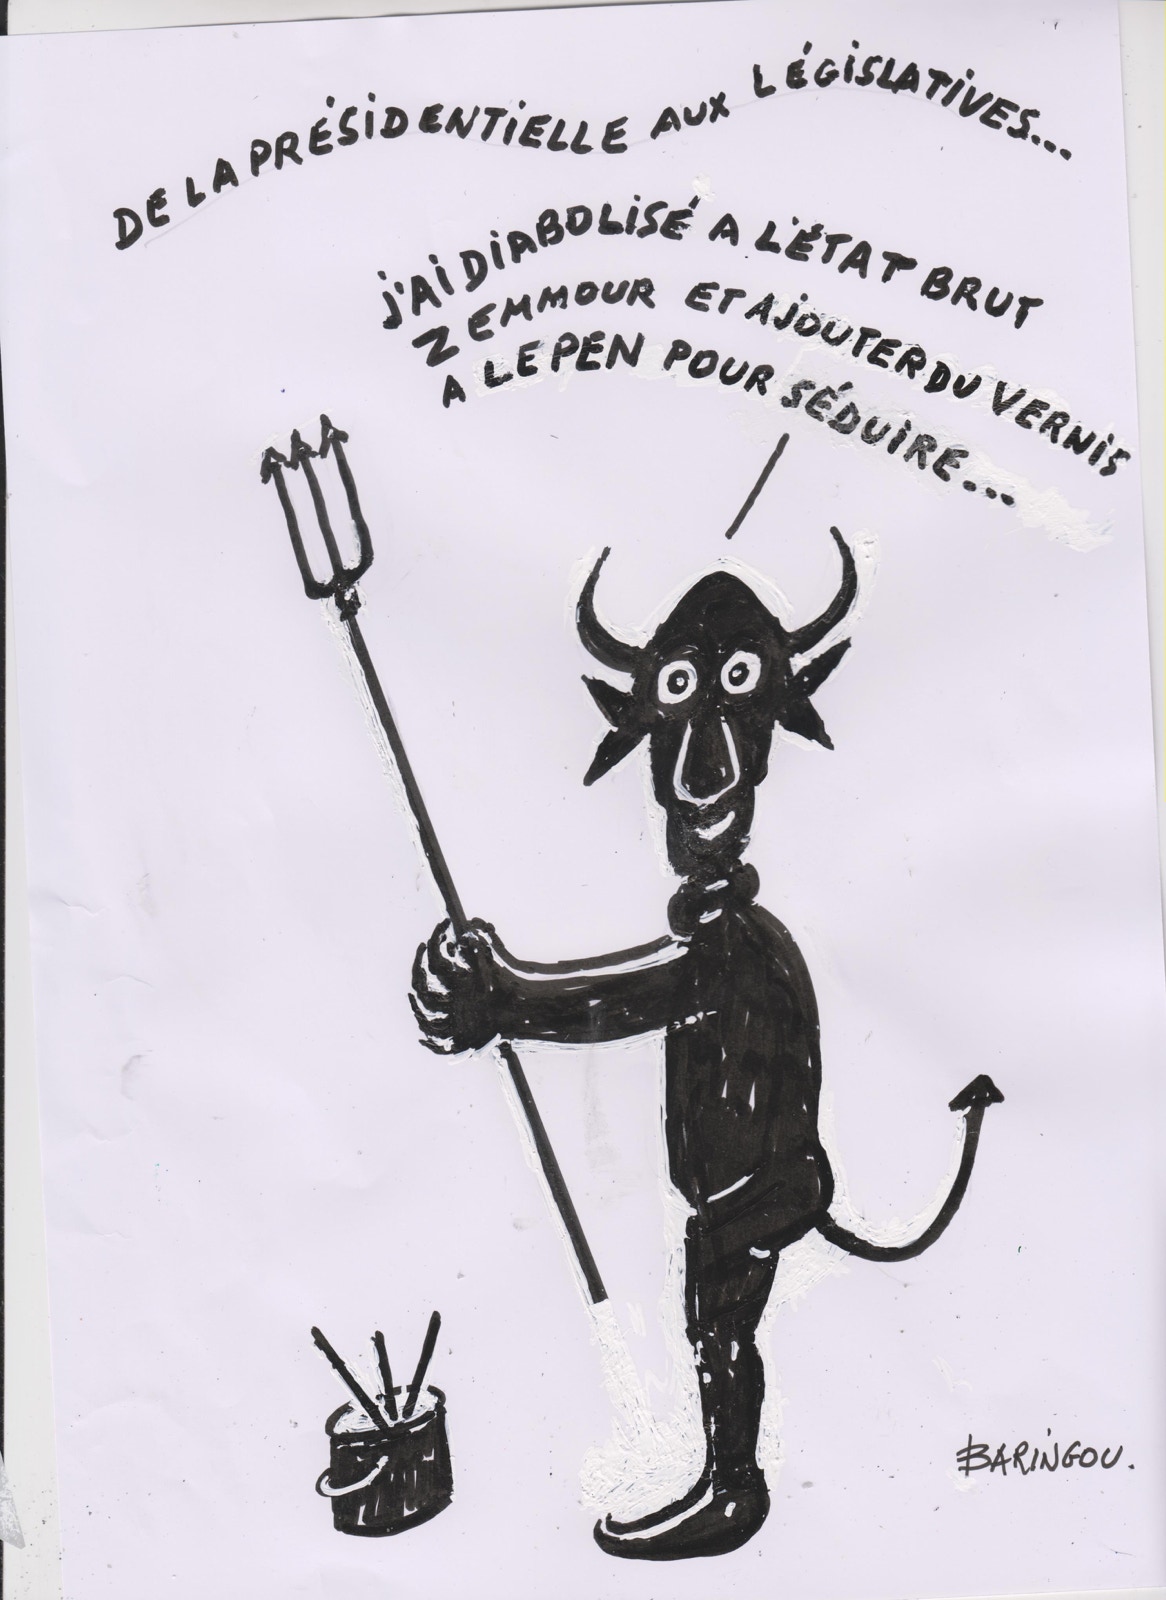 DE LA PRÉSIDENTIELLE AUX LÉGISLATIVES...
J'AI DIABOLISÉ A L'ÉTAT BRUT
ZEMMOUR ET AJOUTER DU VERNIS
A LE PEN POUR SÉDUIRE...
BARINGOU.